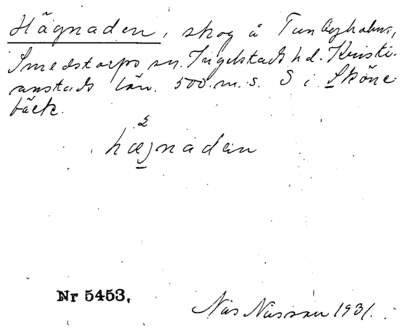 Hägnaden, skog å Tunbyholm,
Smedstorps sn. Ingelstads hd. Kristi-
anstads län. 500 m. S. S i Sköne
bäck.
hægnaden
Nr 5453.
1931.